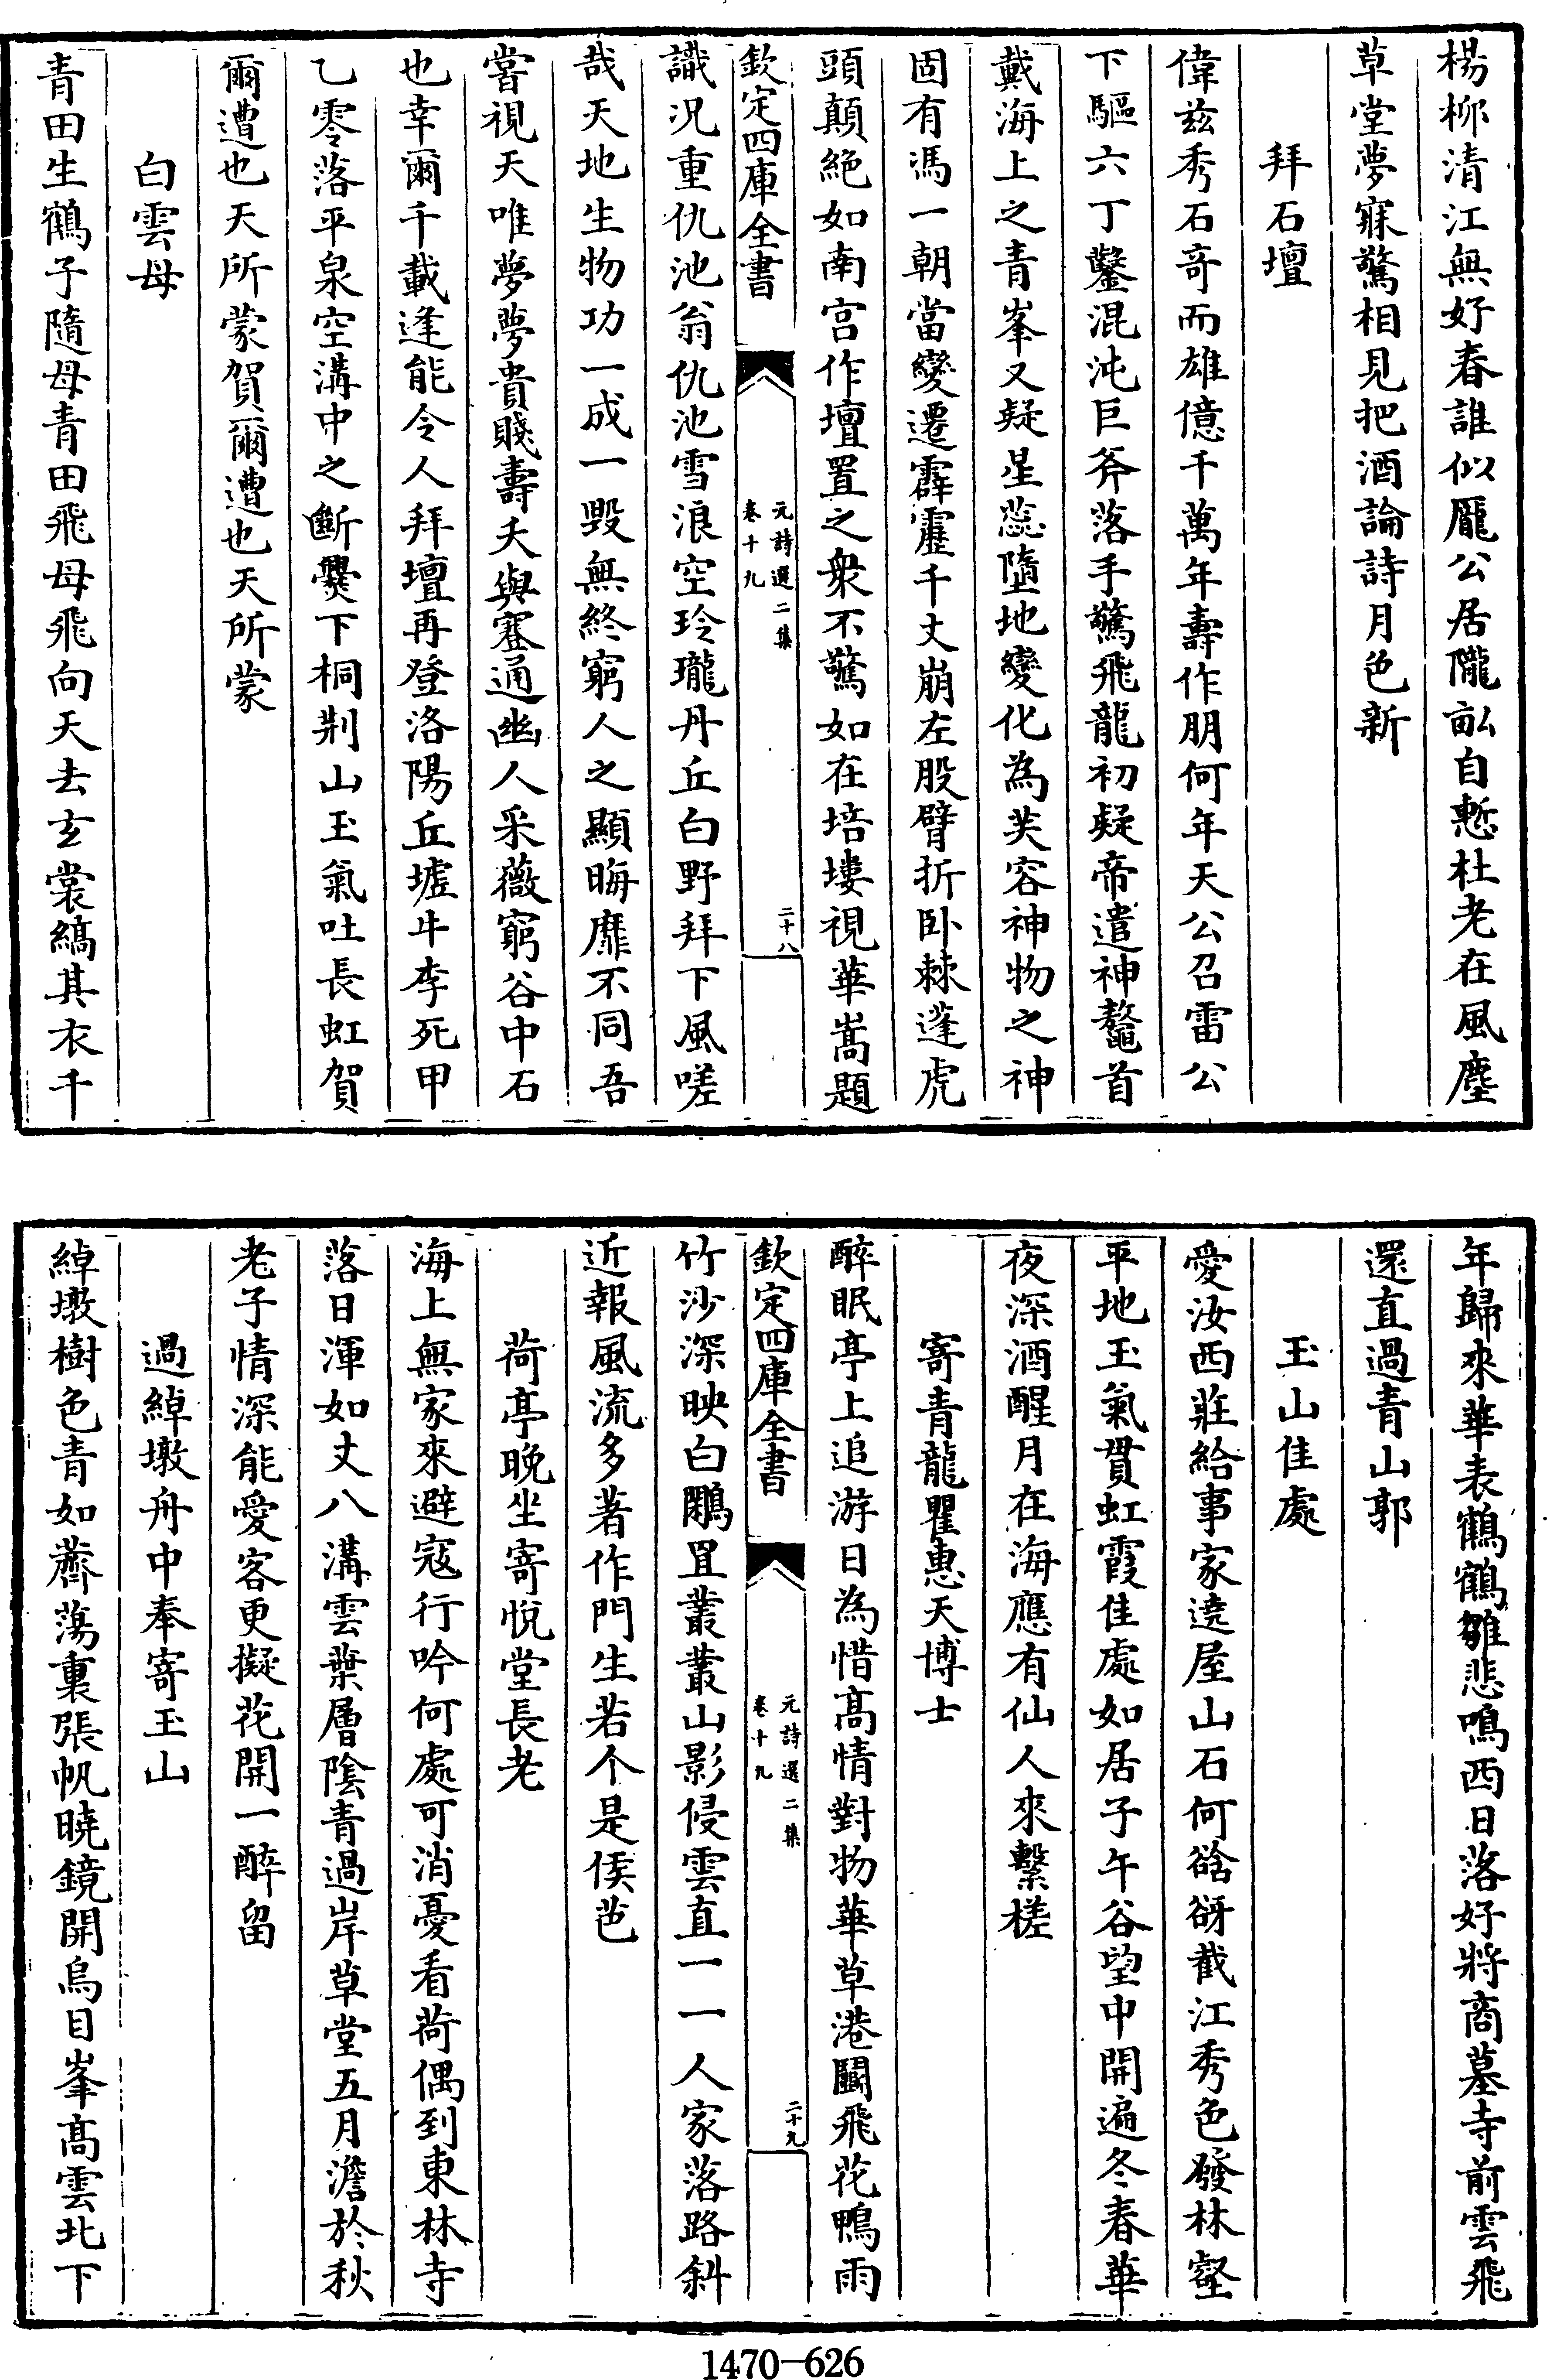 楊栁清江無好春誰似龎公居隴畆自慙杜老在風塵
草堂夢寐驚相見把酒論詩月色新
拜石壇
偉兹秀石竒而雄億千萬年夀作朋何年天公召雷公
下驅六丁鑿混沌巨斧落手驚飛龍初疑帝遣神鼇首
戴海上之青峯又疑星蕊墮地變化為芙容神物之神
固有馮一朝當變遷霹靂千丈崩左股臂折卧棘蓬虎
頭顛絶如南宫作壇置之衆不驚如在培塿視華嵩題
欽定四庫全書
元詩選二集
卷十九
二十八
識况重仇池翁仇池雪浪空玲瓏丹丘白野拜下風嗟
哉天地生物功一成一毁無終窮人之顯晦靡不同吾
嘗視天唯夢夢貴賤夀夭與蹇通幽人采薇窮谷中石
也幸爾千載逢能令人拜壇再登洛陽丘墟牛李死甲
乙零落平泉空溝中之斷㸑下桐荆山玉氣吐長虹賀
爾遭也天所蒙賀爾遭也天所蒙
白雲母
青田生鶴子隨母青田飛母飛向天去玄裳縞其衣千
年歸來華表鶴鶴雛悲鳴西日落好將商墓寺前雲飛
還直過青山郭
玉山佳處
愛汝西莊給事家遶屋山石何谽谺截江秀色發林壑
平地玉氣貫虹霞佳處如居子午谷望中開遍冬春華
夜深酒醒月在海應有仙人來繫槎
寄青龍瞿惠天博士
醉眠亭上追游日為惜髙情對物華草港鬬飛花鴨雨
欽定四庫全書
元詩選二集
卷十九
二十九
竹沙深映白鷳罝叢叢山影侵雲直一一人家落路斜
近報風流多著作門生若个是侯芭
荷亭晚坐寄悦堂長老
海上無家來避寇行吟何處可消憂看荷偶到東林寺
落日渾如丈八溝雲葉層陰青過岸草堂五月澹於秋
老子情深能愛客更擬花開一醉留
過綽墩舟中奉寄玉山
綽墩樹色青如薺蕩裏張帆曉鏡開烏目峯髙雲北下
1470-626